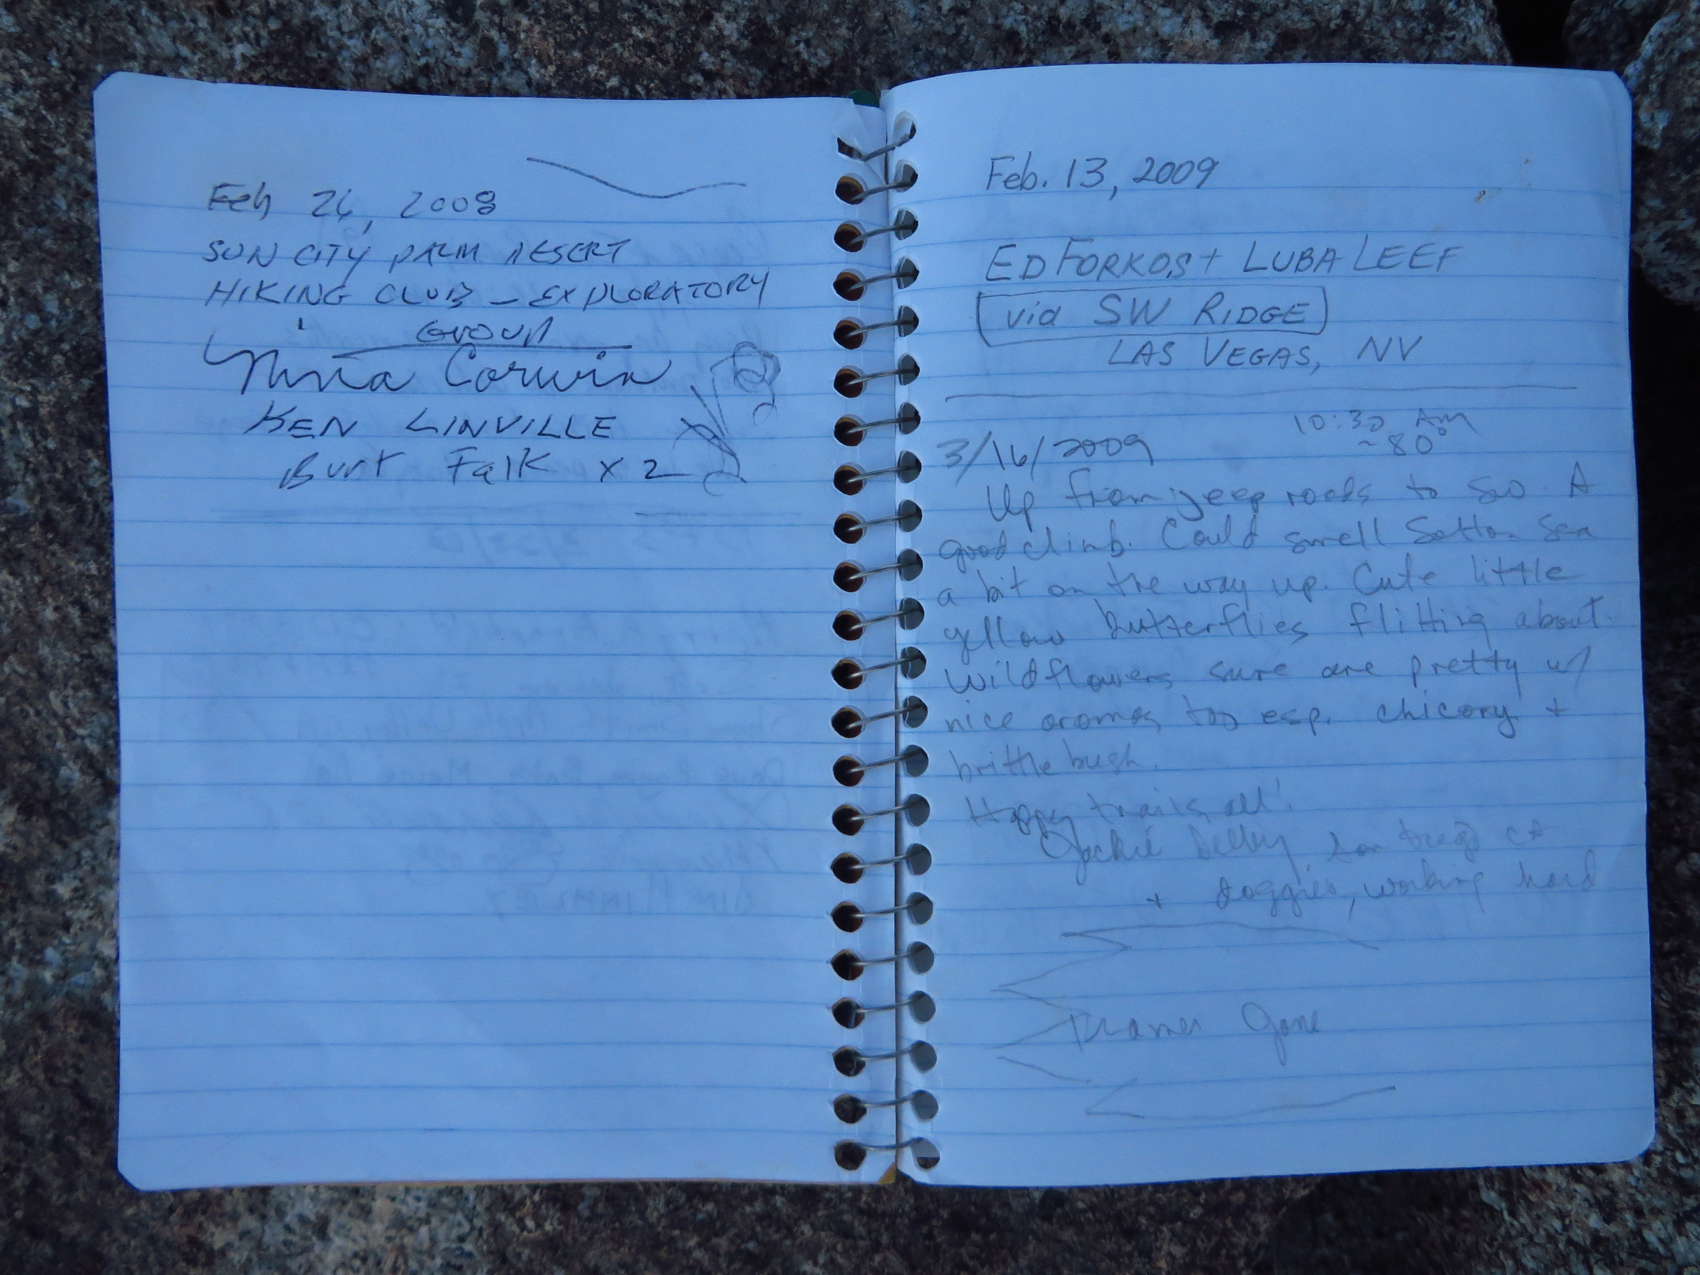 Feb 26, 2008
SUN CITY PALM DESERT
HIKING CLUB - EXPLORATORY
GROUP
Nina Corwin
KEN LINVILLE
Burt Falk x 2
Feb. 13, 2009
ED FORKOS + LUBA LEEF
via SW RIDGE
LAS VEGAS, NV
10:30 AM
3/16/2009 ~80°
Up from jeep roads to SW. A
good climb. Could smell Salton Sea
a bit on the way up. Cute little
yellow butterflies flitting about.
Wildflowers sure are pretty w/
nice aromas too esp. chicory +
brittlebush.
Happy trails, all!
+ doggies, working hard